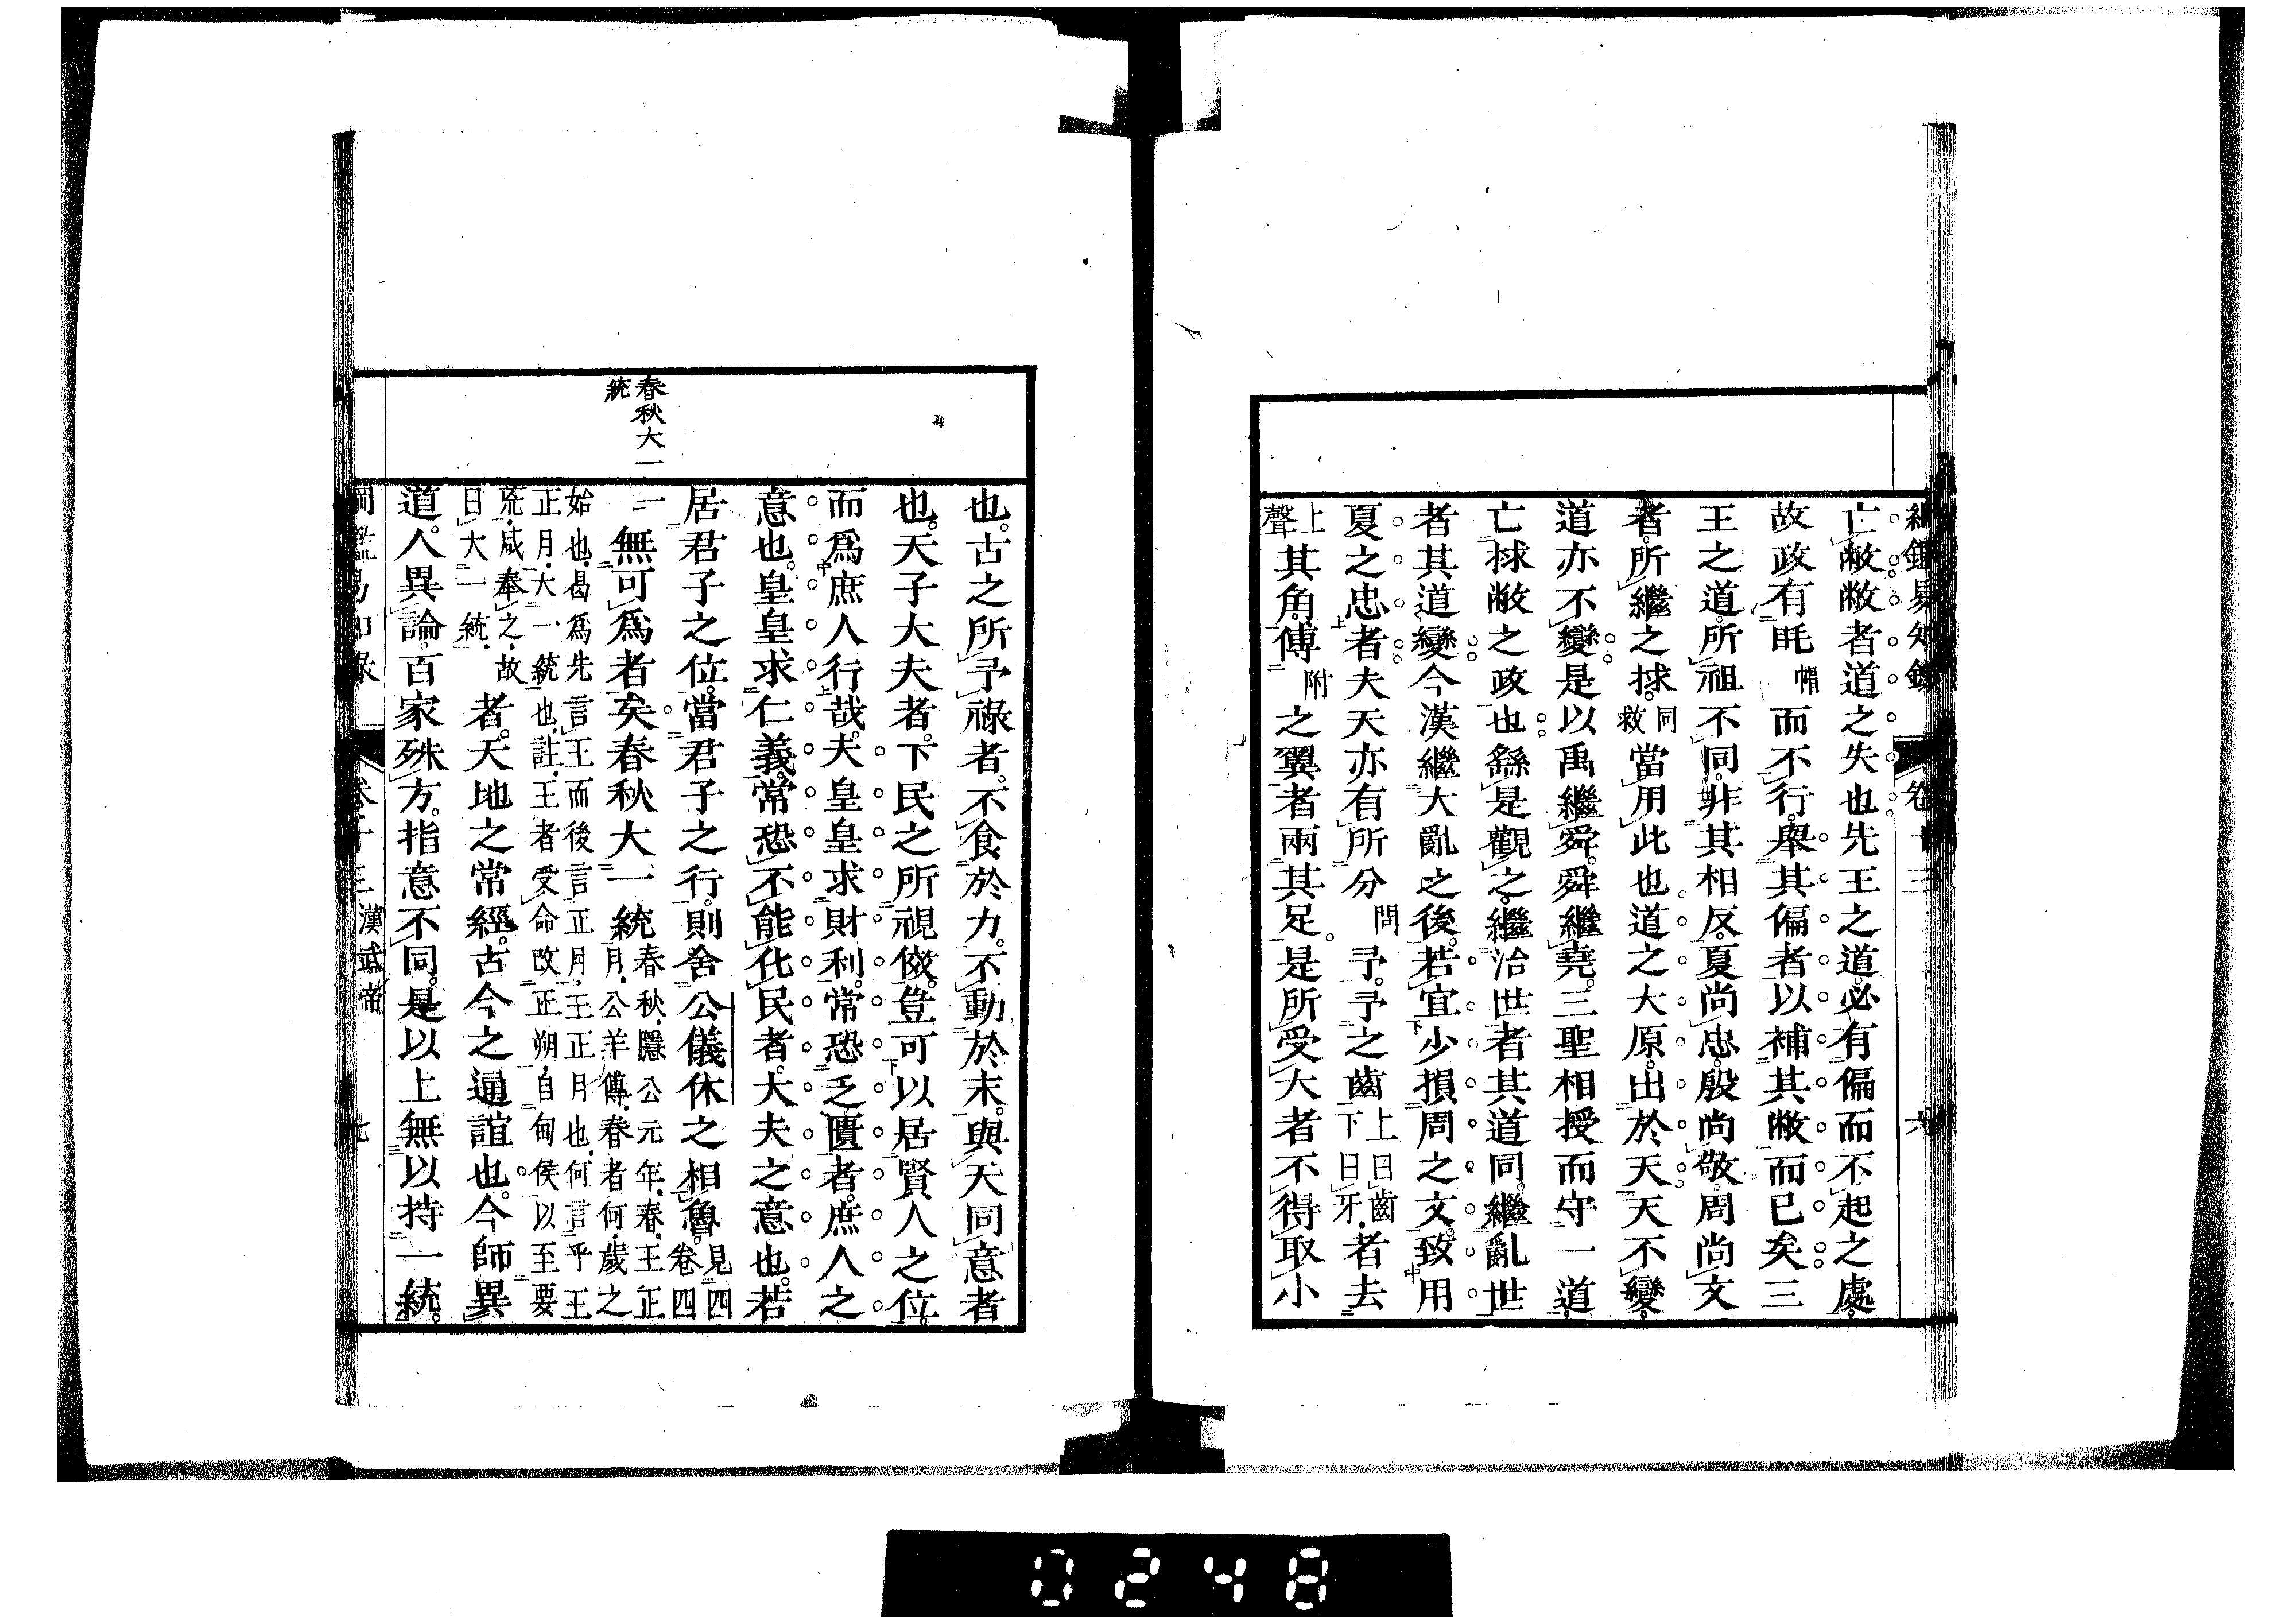 綱鑑易知錄 卷十三 六
亡敝敝者道之失也先王之道必有偏而不起之處
故政有眊帽而不行舉其偏者以補其敝而已矣三
王之道所祖不同非其相反夏尚忠殷尚敬周尚文
者所繼之捄同救當用此也道之大原出於天天不變
道亦不變是以禹繼舜舜繼堯三聖相授而守一道
亡捄敝之政也繇是觀之繼治世者其道同繼亂世
者其道變今漢繼大亂之後若宜少損周之文致用
夏之忠者夫天亦有所分問予予之齒上曰齒下曰牙者去
上聲其角傅附之翼者兩其足是所受大者不得取小
也古之所予祿者不食於力不動於末與天同意者
也天子大夫者下民之所視傚豈可以居賢人之位
而爲庶人行哉夫皇皇求財利常恐乏匱者庶人之
意也皇皇求仁義常恐不能化民者大夫之意也若
居君子之位當君子之行則舍公儀休之相魯見四卷四
春秋大一統
一無可爲者矣春秋大一統春秋隱公元年春王正月公羊傳春者何歲之
始也曷爲先言王而後言正月王正月也何言乎王
正月大一統也註王者受命改正朔自甸侯以至要
荒咸奉之故曰大一統者天地之常經古今之通誼也今師異
道人異論百家殊方指意不同是以上無以持一統
綱鑑易知錄 卷十三 漢武帝 七
0248